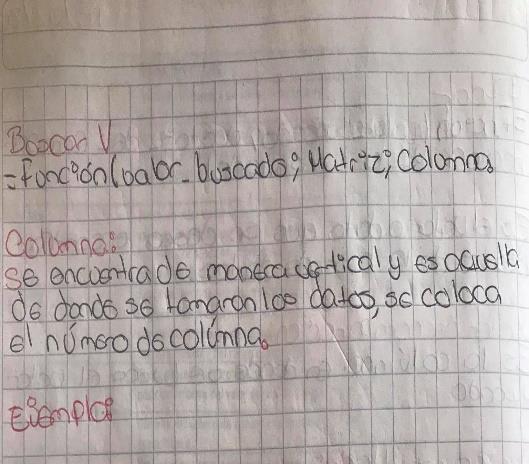 Buscar V
=función(valor_buscado; Matriz; Columna
Columna:
se encuentra de manera vertical y es aquella
de donde se tomaron los datos, se coloca
el número de colúmna.
Ejemplo: